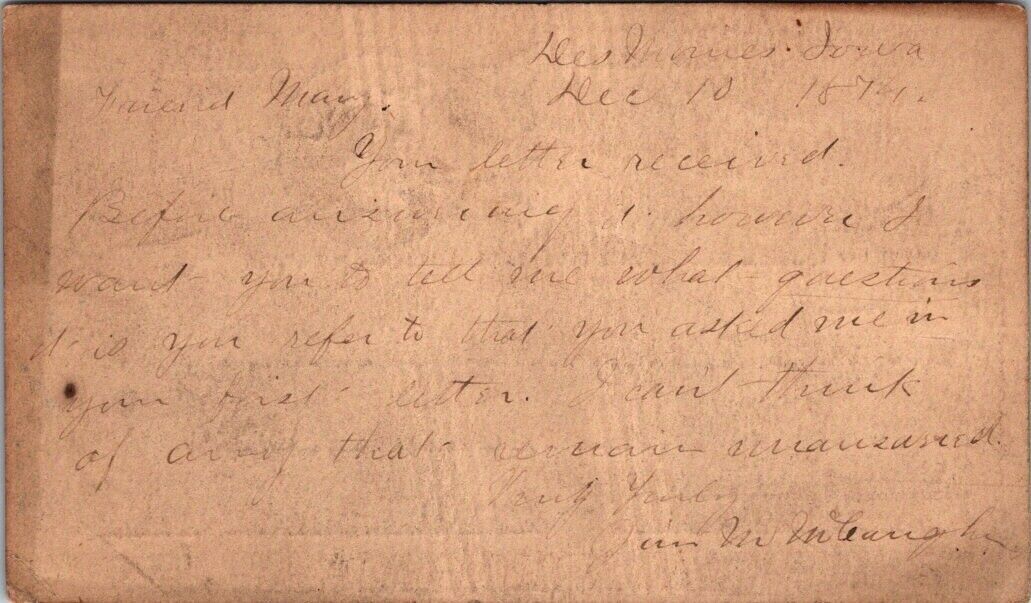 Des Moines Iowa
Dec 10 1874.
Friend Mary.
Your letter received.
Before answering it however I
want you to tell me what questions
it is you refer to that you asked me in
your first letter. I can't think
of any that remain unanswered.
Very Truly
Jim M